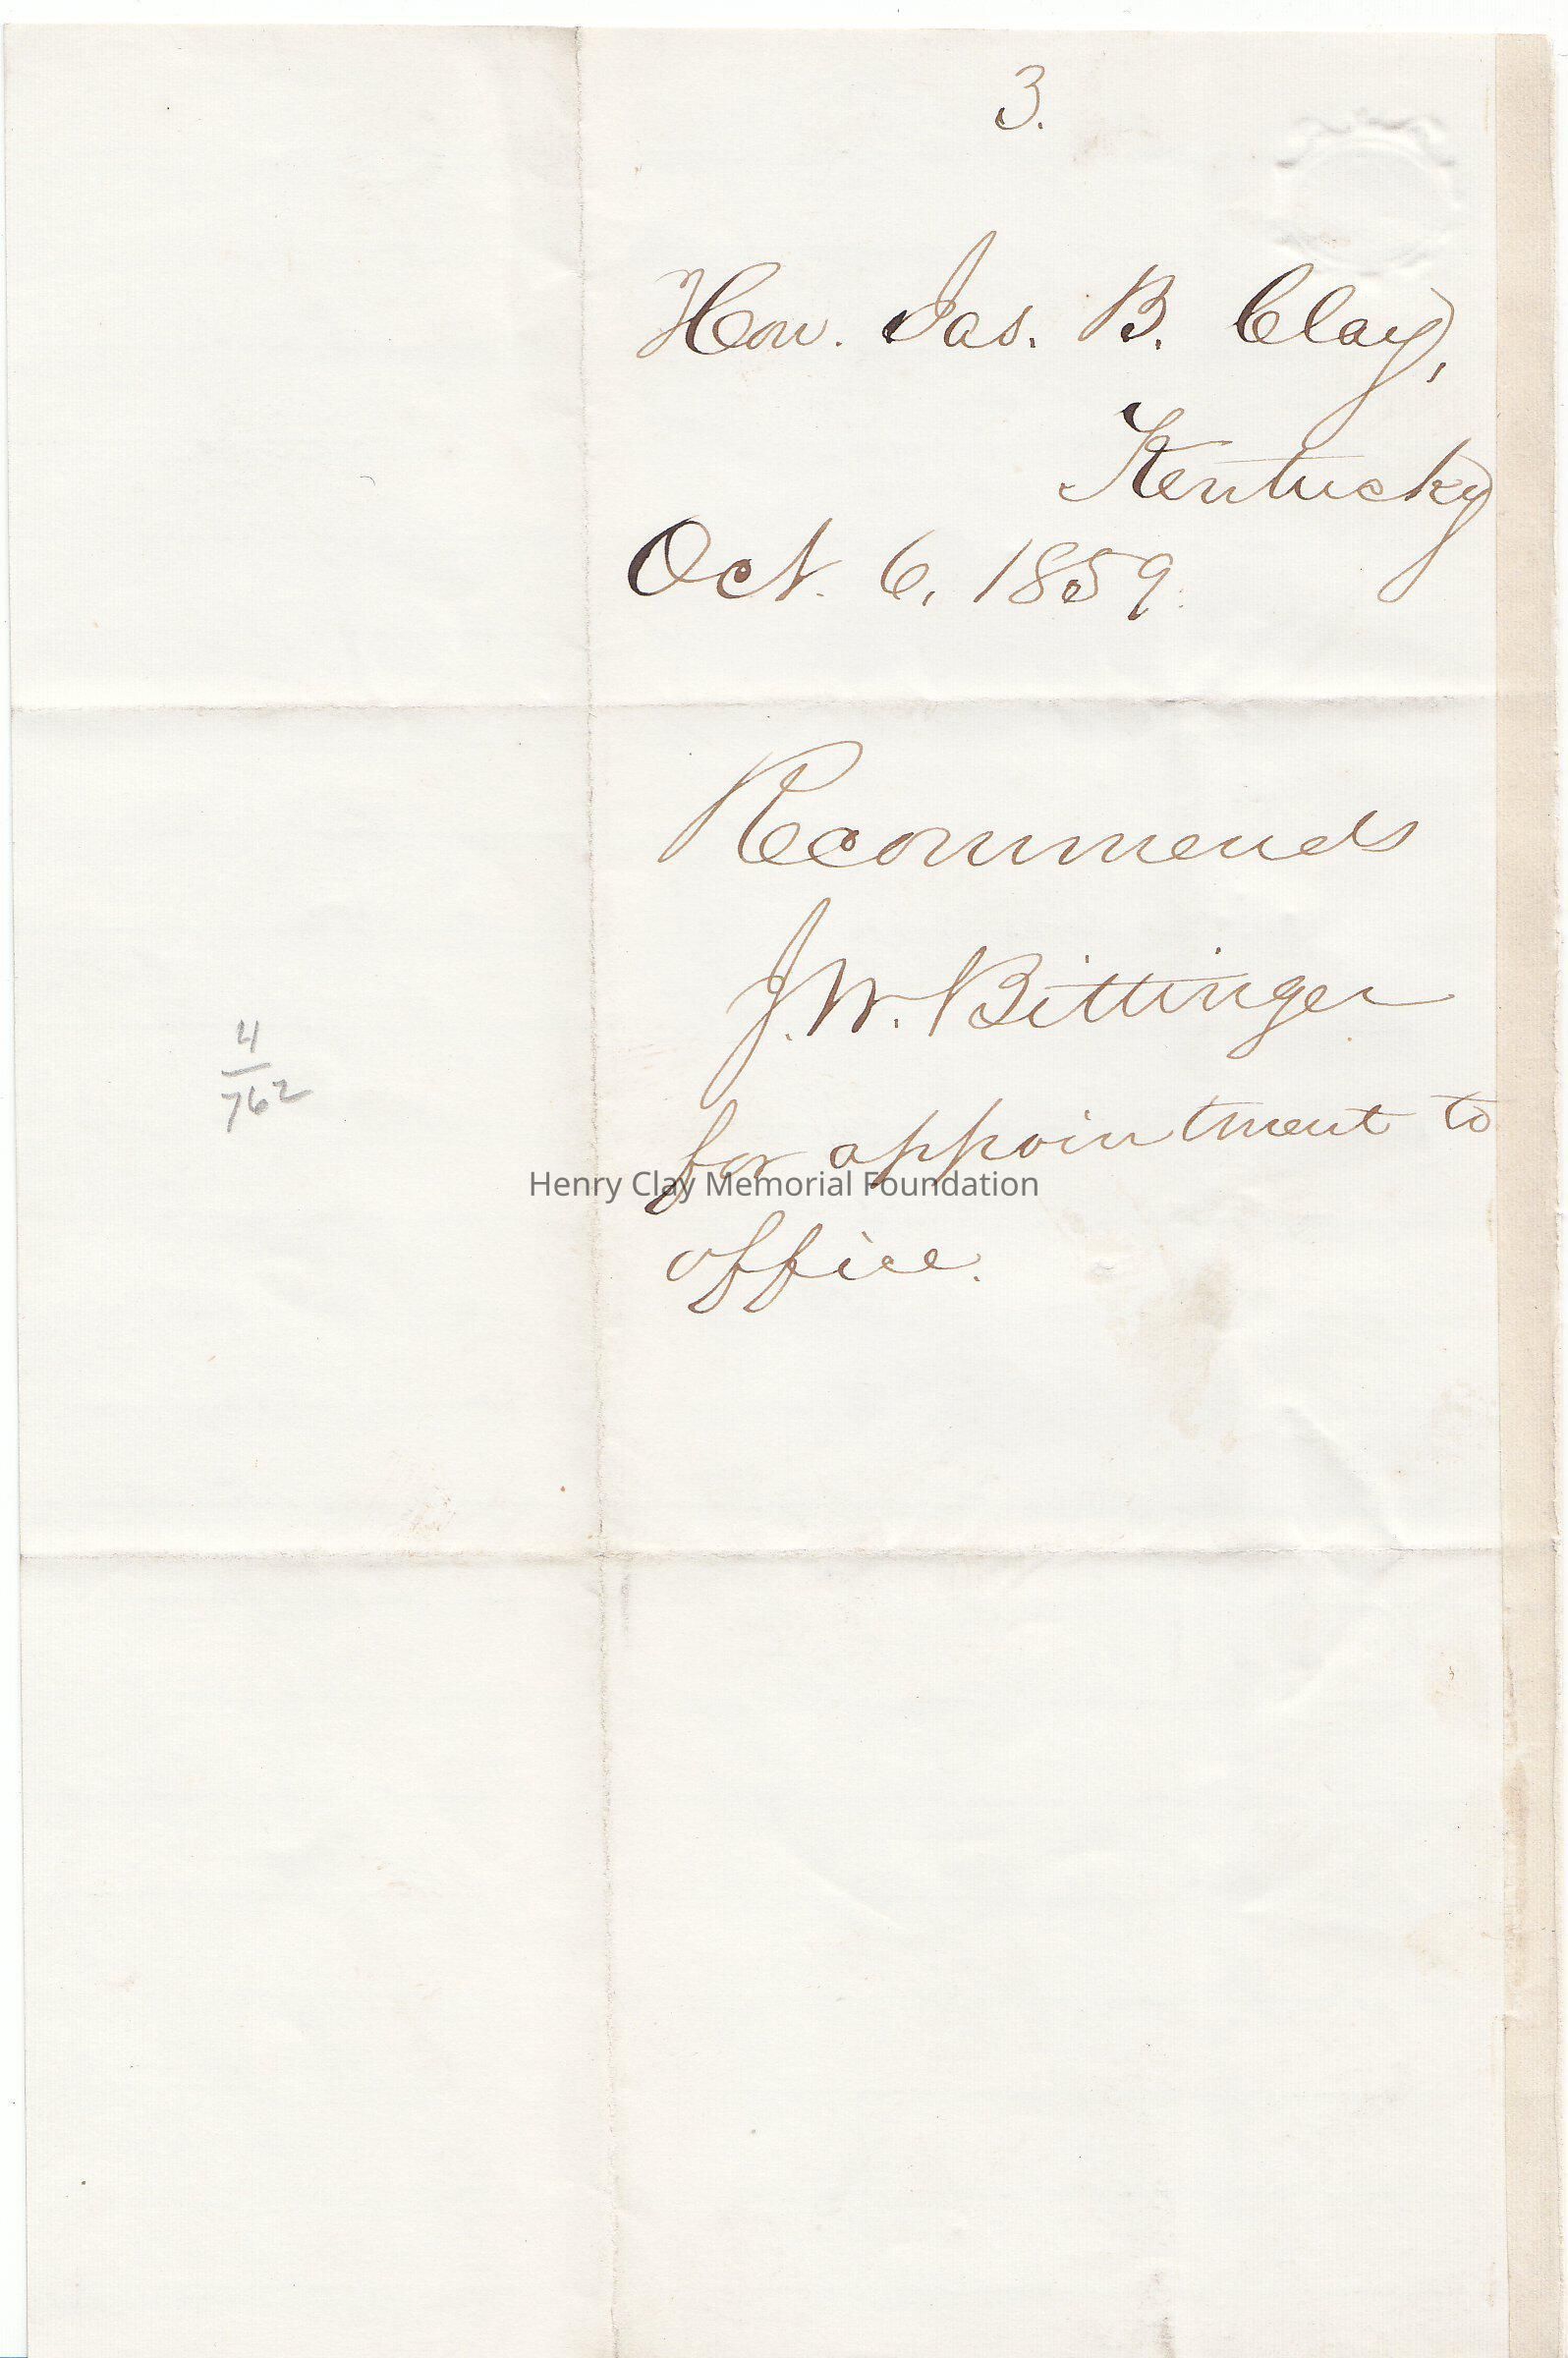 3.
Hon. Jas. B. Clay,
Kentucky
Oct. 6, 1859.
Recommends
J. W. Bittinger
for appointment to
office.
4
762
Henry Clay Memorial Foundation